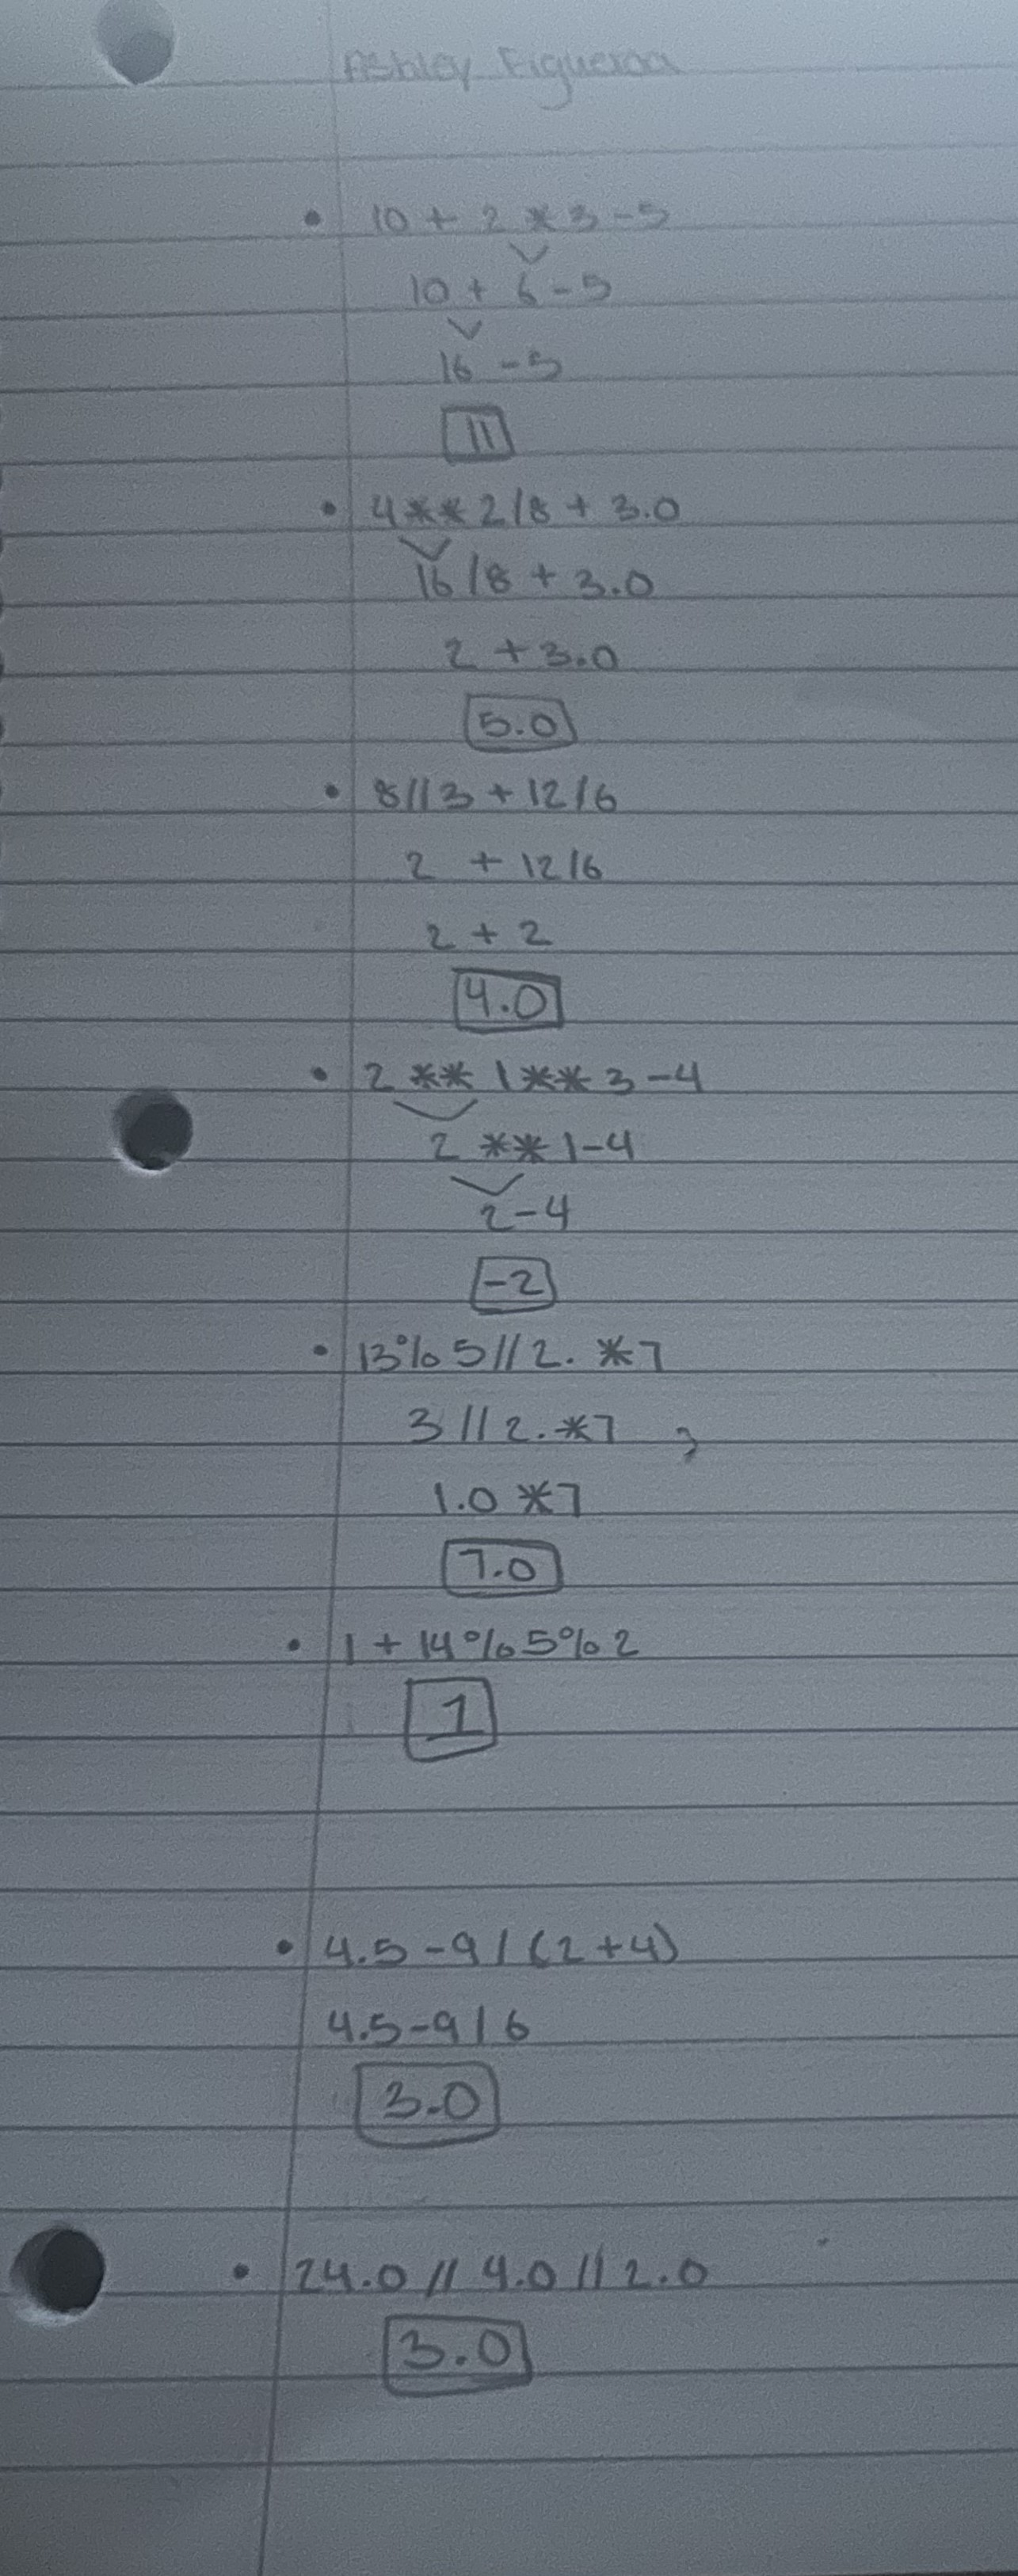 Ashley Figueroa
• 10 + 2 * 3 - 5
10 + 6 - 5
16 - 5
11
• 4 ** 2 / 8 + 3.0
16 / 8 + 3.0
2 + 3.0
5.0
• 8 // 3 + 12 / 6
2 + 12 / 6
2 + 2
4.0
• 2 ** 1 ** 3 - 4
2 ** 1 - 4
2 - 4
-2
• 13 % 5 // 2. * 7
3 // 2. * 7
1.0 * 7
7.0
• 1 + 14 % 5 % 2
1
• 4.5 - 9 / (2 + 4)
4.5 - 9 / 6
3.0
• 24.0 // 4.0 // 2.0
3.0